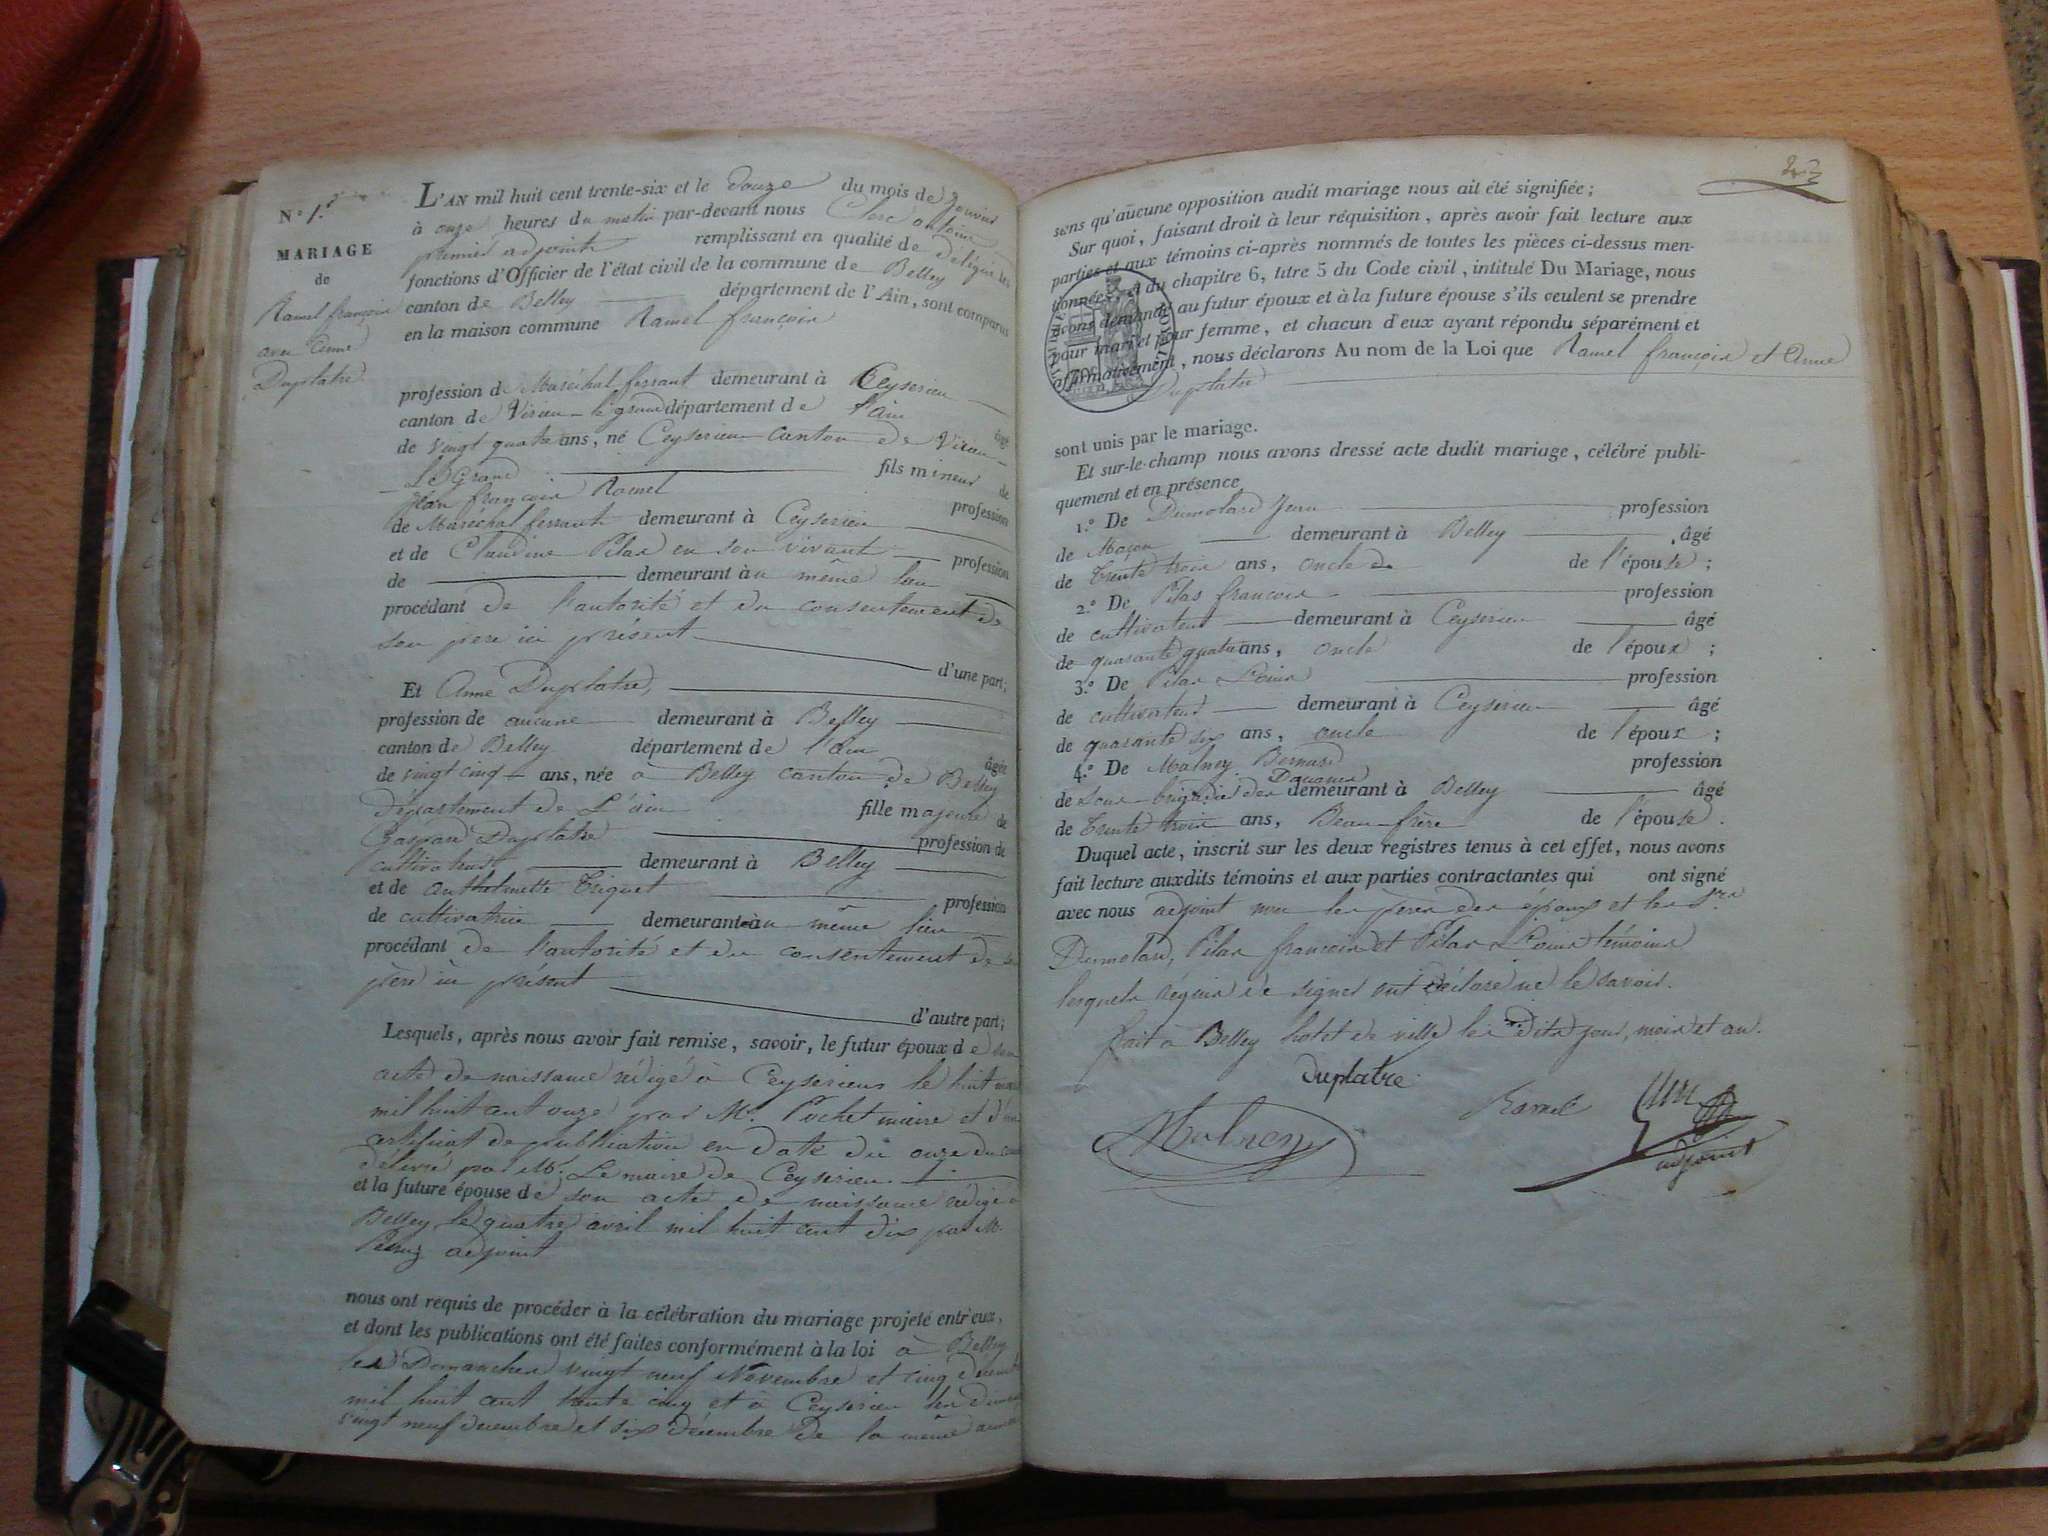 N.° 1.er
MARIAGE
de
Ramel françois
avec Anne
Duplatre
L'AN mil huit cent trente-six et le douze du mois de Janvier
à onze heures du matin par-devant nous Clerc antoine
premier adjoint remplissant en qualité de délégué les
fonctions d'Officier de l'état civil de la commune de Belley
canton de Belley département de l'Ain, sont comparus
en la maison commune Ramel françois
profession de Maréchal ferrant demeurant à Ceyserieu
canton de Virieu-le grand département de l'ain âgé
de vingt quatre ans, né Ceyserieu canton de Virieu
Le Grand fils mineur de
Jean françois Ramel profession
de Maréchal ferrant demeurant à Ceyserieu
et de Claudine Pilas en son vivant profession
de demeurant au même lieu
procédant de l'autorité et du consentement de
son pere ici présent
d'une part;
Et Anne Duplatre,
profession de aucune demeurant à Belley
canton de Belley département de l'ain âgée
de vingt cinq ans, née à Belley canton de Belley
département de L'ain fille majeure de
Gaspard Duplatre profession de
cultivateur demeurant à Belley
et de anthelmette Triquet profession
de cultivatrice demeurant au même lieu
procédant de l'autorité et du consentement de son
père ici présent
d'autre part;
Lesquels, après nous avoir fait remise, savoir, le futur époux de son
acte de naissance rédigé à Ceyserieu le huit
mil huit cent onze par M. Pochet maire et d'un
certificat de publication en date du onze du
délivré par M. Le maire de Ceyserieu
et la future épouse de son acte de naissance rédigé à
Belley le quatre avril mil huit cent dix par M.
adjoint
nous ont requis de procéder à la célébration du mariage projeté entr'eux,
et dont les publications ont été faites conformément à la loi à Belley
les Dimanches vingt neuf Novembre et cinq
mil huit cent trente cinq et à Ceyserieu les
vingt neuf decembre et six décembre de la même année
23
sans qu'aucune opposition audit mariage nous ait été signifiée;
Sur quoi, faisant droit à leur réquisition, après avoir fait lecture aux
parties et aux témoins ci-après nommés de toutes les pièces ci-dessus men-
tionnées, et du chapitre 6, titre 5 du Code civil, intitulé Du Mariage, nous
avons demandé au futur époux et à la future épouse s'ils veulent se prendre
pour mari et pour femme, et chacun d'eux ayant répondu séparément et
affirmativement, nous déclarons Au nom de la Loi que Ramel françois et Anne
Duplatre
sont unis par le mariage.
Et sur-le-champ nous avons dressé acte dudit mariage, célébré publi-
quement et en présence
1.° De Dumolard Jean profession
de Maçon demeurant à Belley âgé
de trente trois ans, oncle de de l'épouse;
2.° De Pilas francois profession
de cultivateur demeurant à Ceyserieu âgé
de quarante quatre ans, oncle de l'époux;
3.° De Pilas Louis profession
de cultivateur demeurant à Ceyserieu âgé
de quarante six ans, oncle de l'époux;
4.° De Malney Bernard profession
de sous-brigadier des Douanes demeurant à Belley âgé
de trente trois ans, Beau-frère de l'épouse.
Duquel acte, inscrit sur les deux registres tenus à cet effet, nous avons
fait lecture auxdits témoins et aux parties contractantes qui ont signé
avec nous adjoint non les pères des époux et les Srs
Dumolard, Pilas francois et Pilas Louis témoins
lesquels requis de signer ont déclaré ne le savoir.
fait à Belley hotel de ville les dits jour, mois et an.
Duplatre
Malney
Ramel
Clerc
adjoint